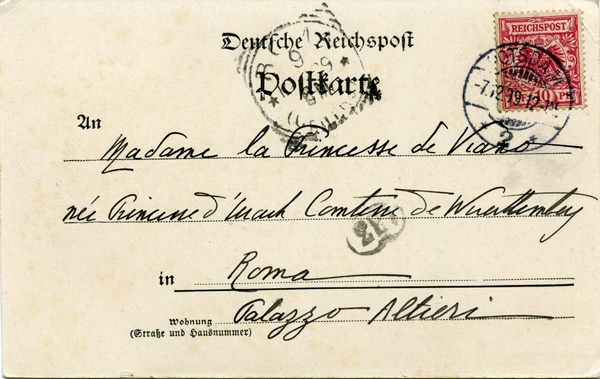 Deutsche Reichspost
Postkarte
REICHSPOST
10 PF
ROMA
9
An
Madame la Princesse de Viano
née Princesse d'Urach Comtesse de Wurttemberg
in Roma
Wohnung Palazzo Altieri
(Straße und Hausnummer)